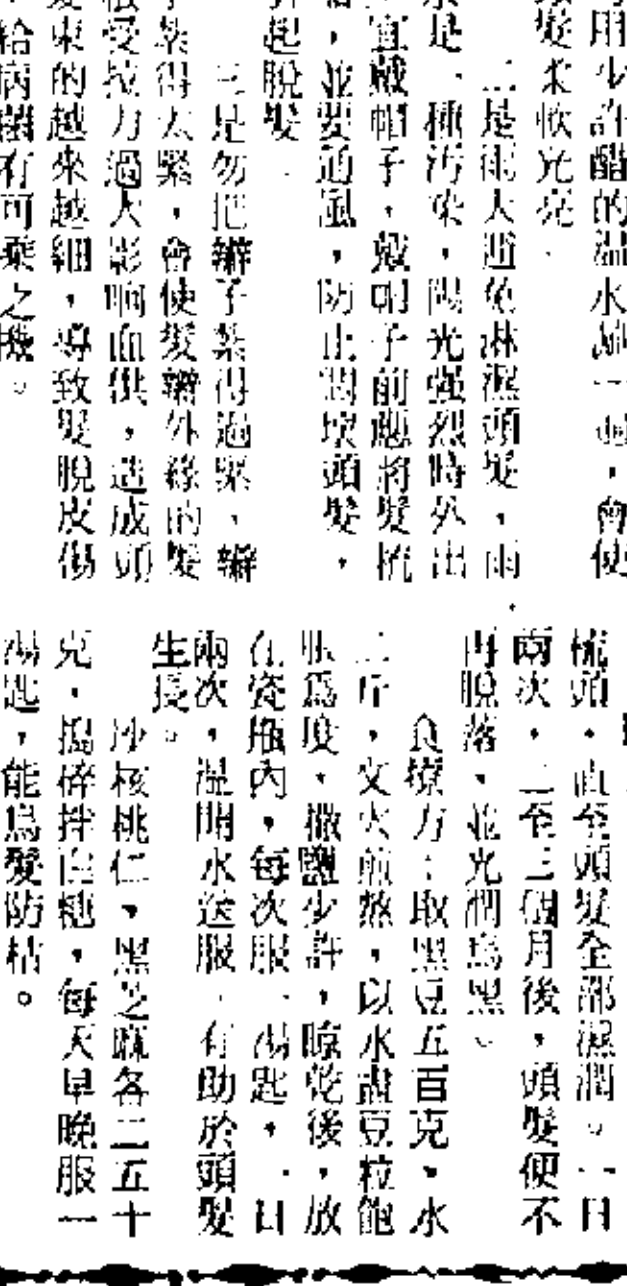 可用少許醋的温水漱一遍，會使
頭髮柔軟光亮。
二是雨天避免淋濕頭髮，雨
水是一種污染，陽光强烈時外出
宜戴帽子，戴帽子前應將髮梳
，並要通風，防止悶壞頭髮，
引起脱髮。
三是勿把辮子紮得過緊，辮
子紮得太緊，會使髮辮外緣的髮
根受拉力過大影响血供，造成頭
髮束的越來越細，導致髮脱皮傷
，給病菌有可乘之機。
梳頭，直至頭髮全部濕潤。一日
兩次，二至三個月後，頭髮便不
再脱落，並光潤烏黑。
食療方：取黑豆五百克，水
二斤，文火煎熬，以水盡豆粒飽
脹爲度，撒鹽少許，晾乾後，放
在瓷瓶內，每次服一湯匙，一日
兩次，温開水送服，有助於頭髮
生長。
沙核桃仁，黑芝麻各二五十
克，搗碎拌白糖，每天早晚服一
湯匙，能烏髮防枯。